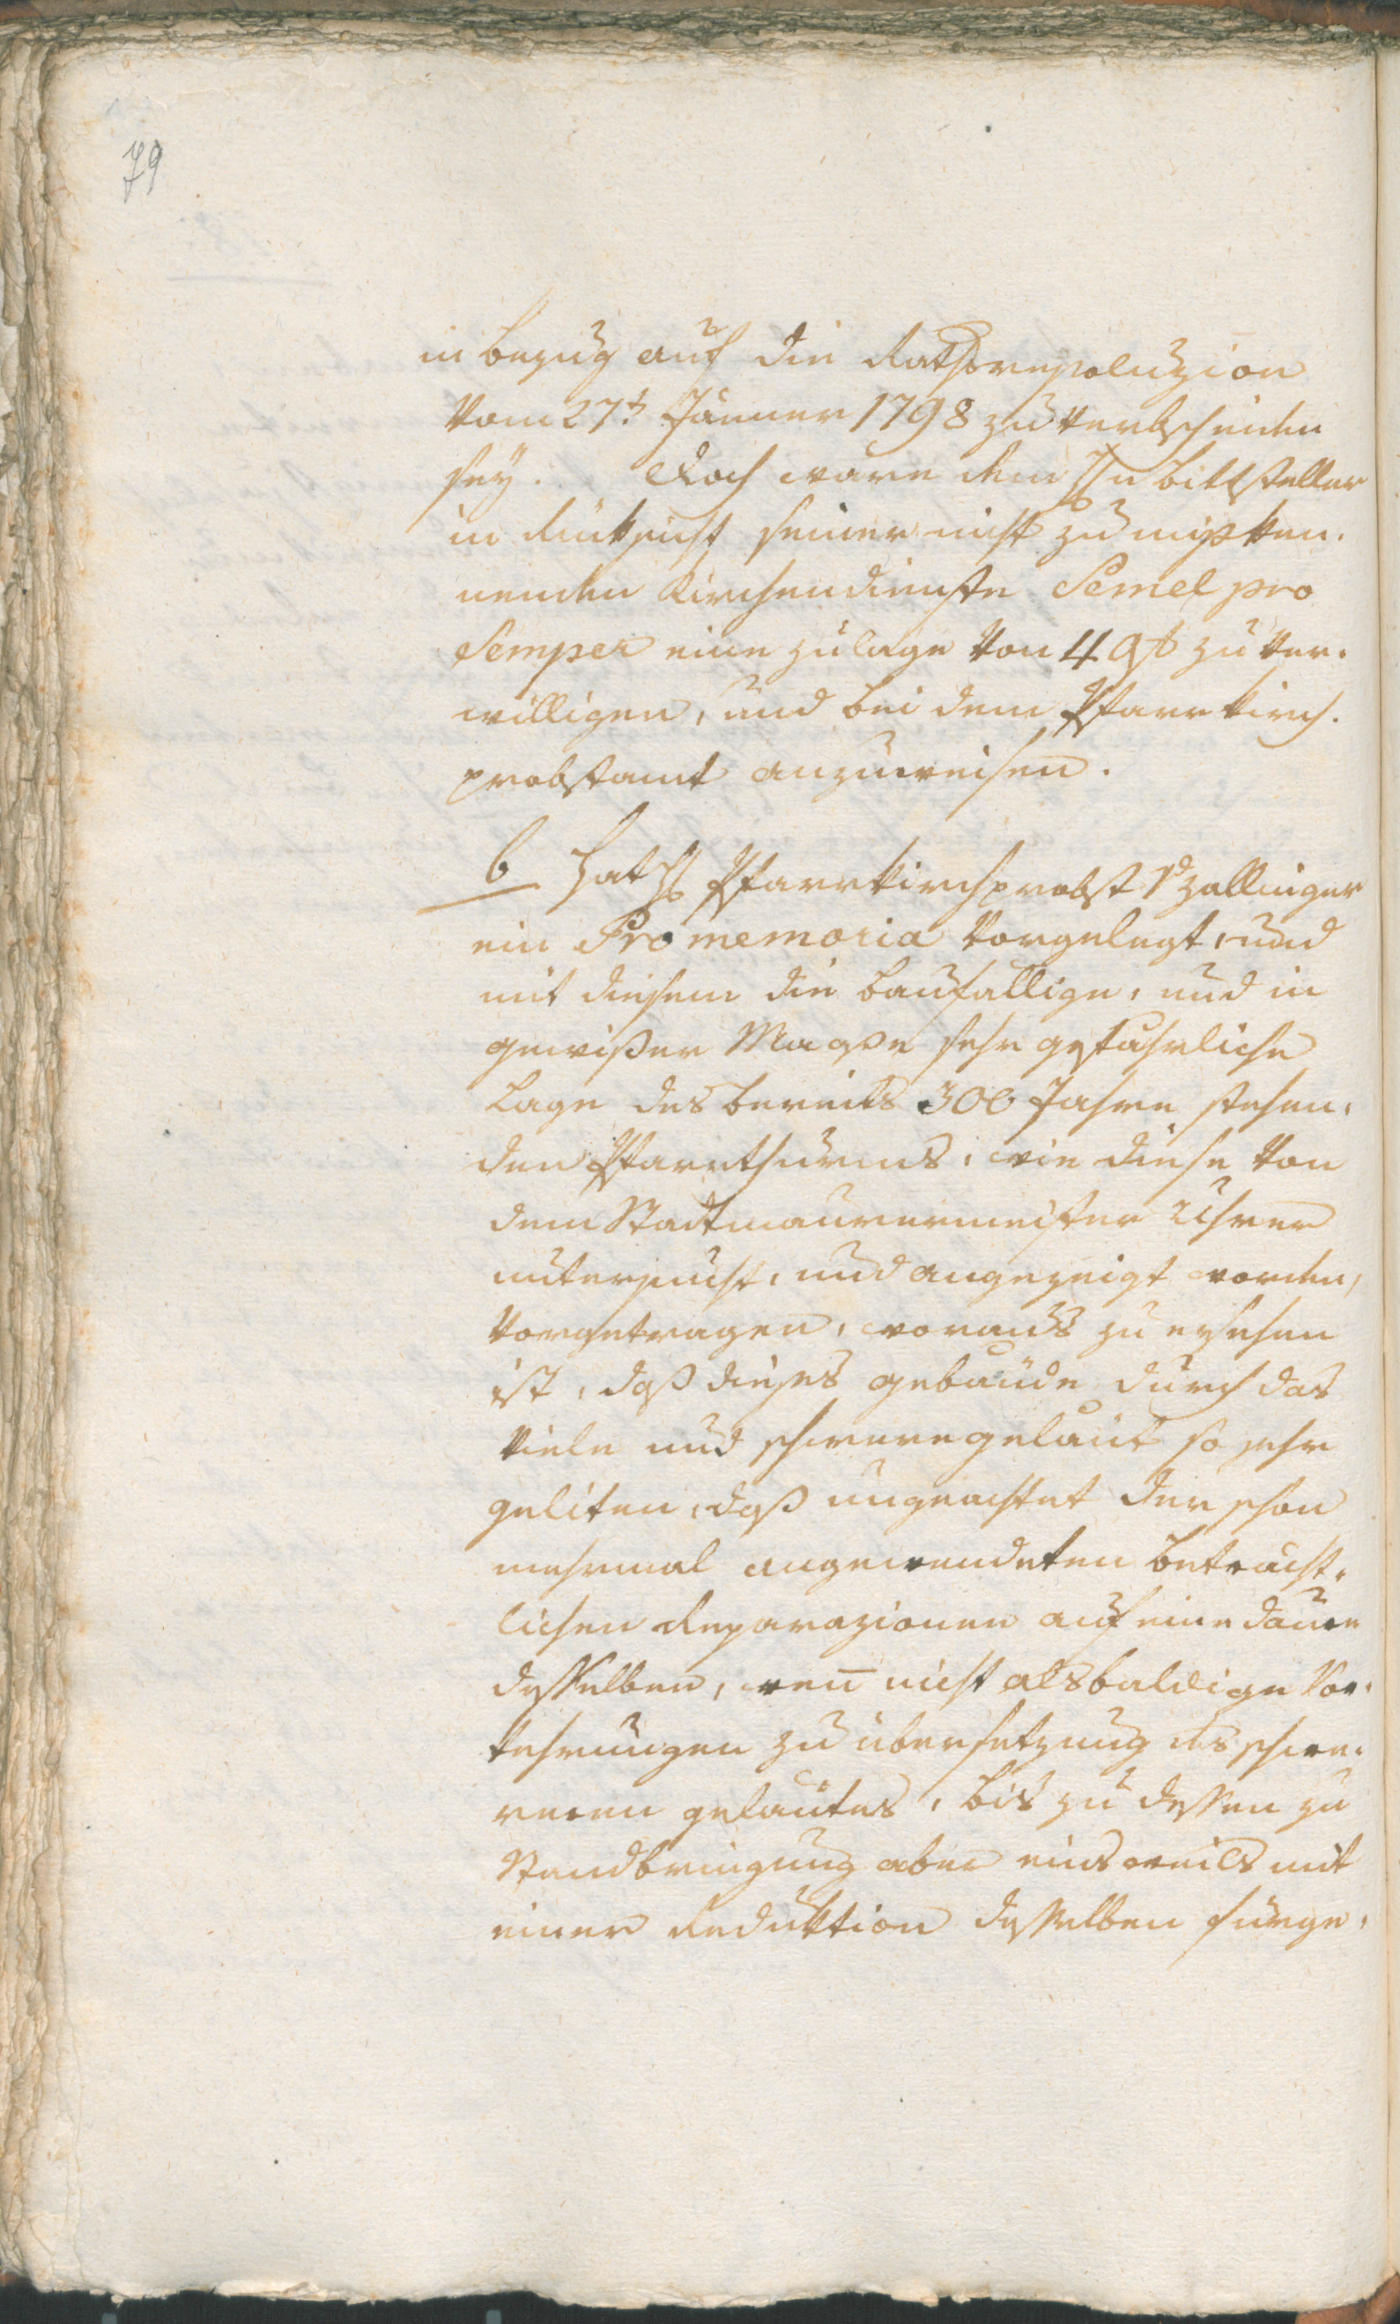 79
in bezug auf die Rathsresoluzion
vom 27t. Jäner 1798 zu verbscheiden
sey. Doch wäre dem Hn bittsteller
in Rüksicht seiner nicht zu mißken-
nenden Kirchendienste Semel pro
Semper eine zulage von 49 f zu ver-
willigen, und bei dem Pfarrkirch-
probstamt anzuweisen.
6 Hat H Pfarrkirchprobst v zallinger
ein Promemoria vorgelegt, und
mit diesem die baufällige, und in
gewißer Maaße sehr gefährliche
Lage des bereits 300 Jahre stehen-
den Pfarrthurms, wie diese von
dem Stadtmaurermeister Uhrer
untersucht, und angezeigt worden,
vorgetragen, woraus zu ersehen
ist, daß dieses gebäude durch das
viele und schwere geläut so sehr
geliten, daß ungeachtet der schon
mehrmal angewendeten beträcht-
lichen Reparazionen auf eine dauer
desselben, wen̄ nicht alsbaldige Vor-
kehrungen zu übersetzung des schwe-
reren geläutes, bis zu dessen zu
Standbringung aber einsweils mit
einer Reduktion desselben fürge-